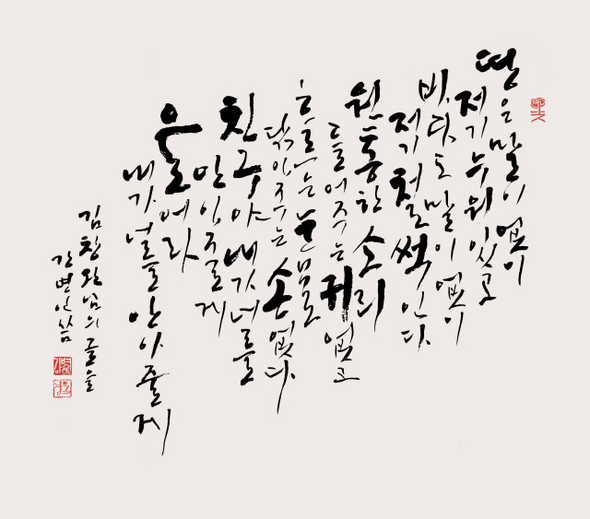 땅은 말이 없이
저기 누워 있고
바다도 말이 없이
철썩인다
원통한 소리
들어주는 귀 없고
흐르는 눈물
닦아주는 손 없다
친구야 내가 너를
줄게
울어라
내가 너를 안아 줄게
김창완님의 글을
강병인 씀